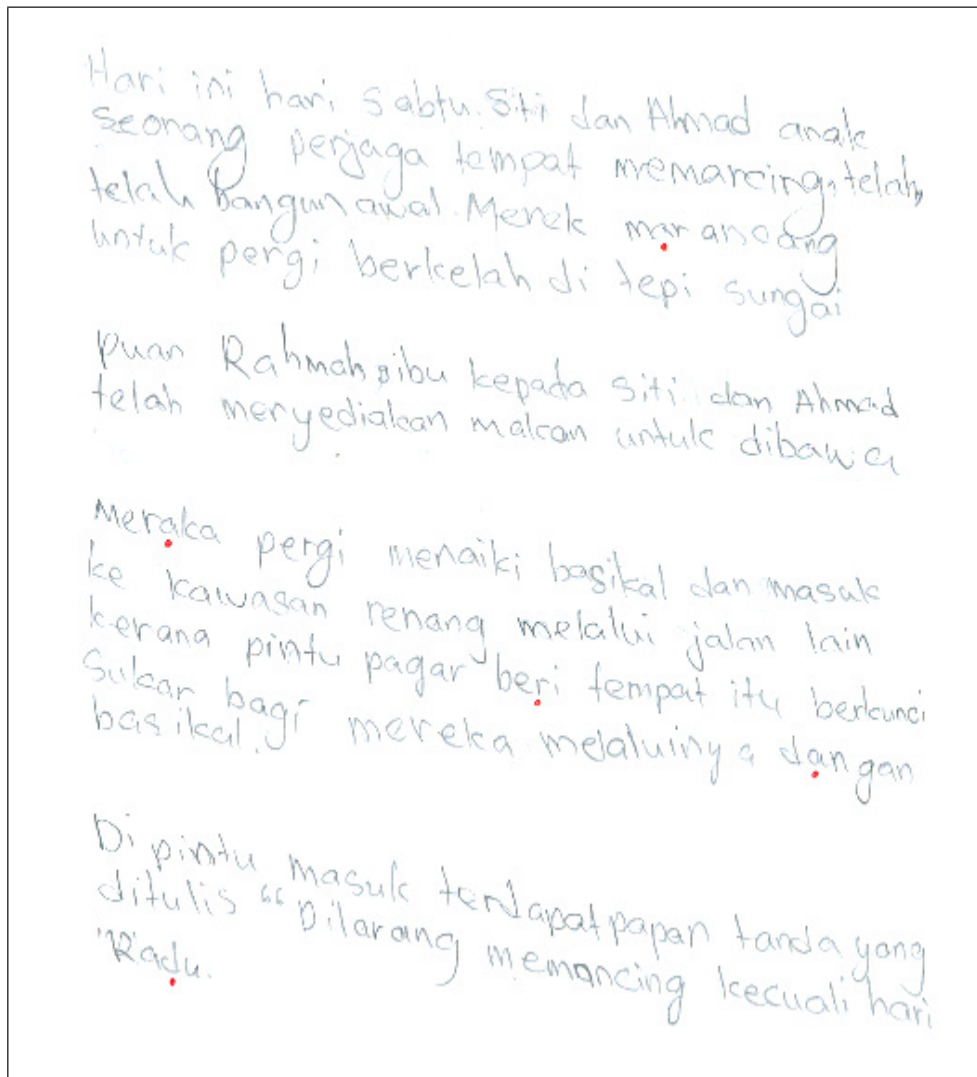 Hari ini hari Sabtu. Siti dan Ahmad anak
seorang penjaga tempat memancing, telah
telah bangun awal. Merek marancang
untuk pergi berkelah di tepi sungai
puan Rahmah, ibu kepada Siti dan Ahmad
telah menyediakan makan untuk dibawa
Meraka pergi menaiki basikal dan masuk
ke kawasan renang melalui jalan lain
kerana pintu pagar beri tempat itu berkunci
Sukar bagi mereka melaluinya dangan
basikal.
Di pintu masuk terdapat papan tanda yang
ditulis “Dilarang memancing kecuali hari
"Radu.